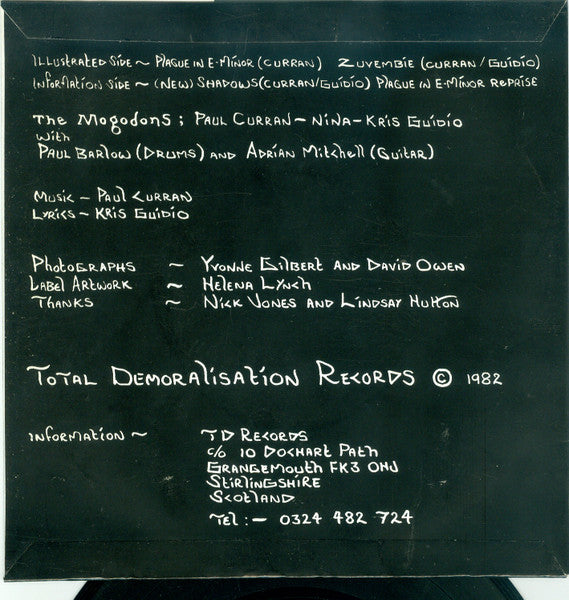 Illustrated Side ~ Plague in E-Minor (Curran) Zuvembie (Curran / Guidio)
Information Side ~ (New) Shadows (Curran/Guidio) Plague in E-Minor Reprise
The Mogodons ; Paul Curran ~ Nina ~ Kris Guidio
with
Paul Barlow (Drums) and Adrian Mitchell (Guitar)
Music ~ Paul Curran
Lyrics ~ Kris Guidio
Photographs ~ Yvonne Gilbert and David Owen
Label Artwork ~ Helena Lynch
Thanks ~ Nick Jones and Lindsay Hutton
Total Demoralisation Records © 1982
Information ~ TD Records
c/o 10 Dochart Path
Grangemouth FK3 0HJ
Stirlingshire
Scotland
Tel :- 0324 482 724